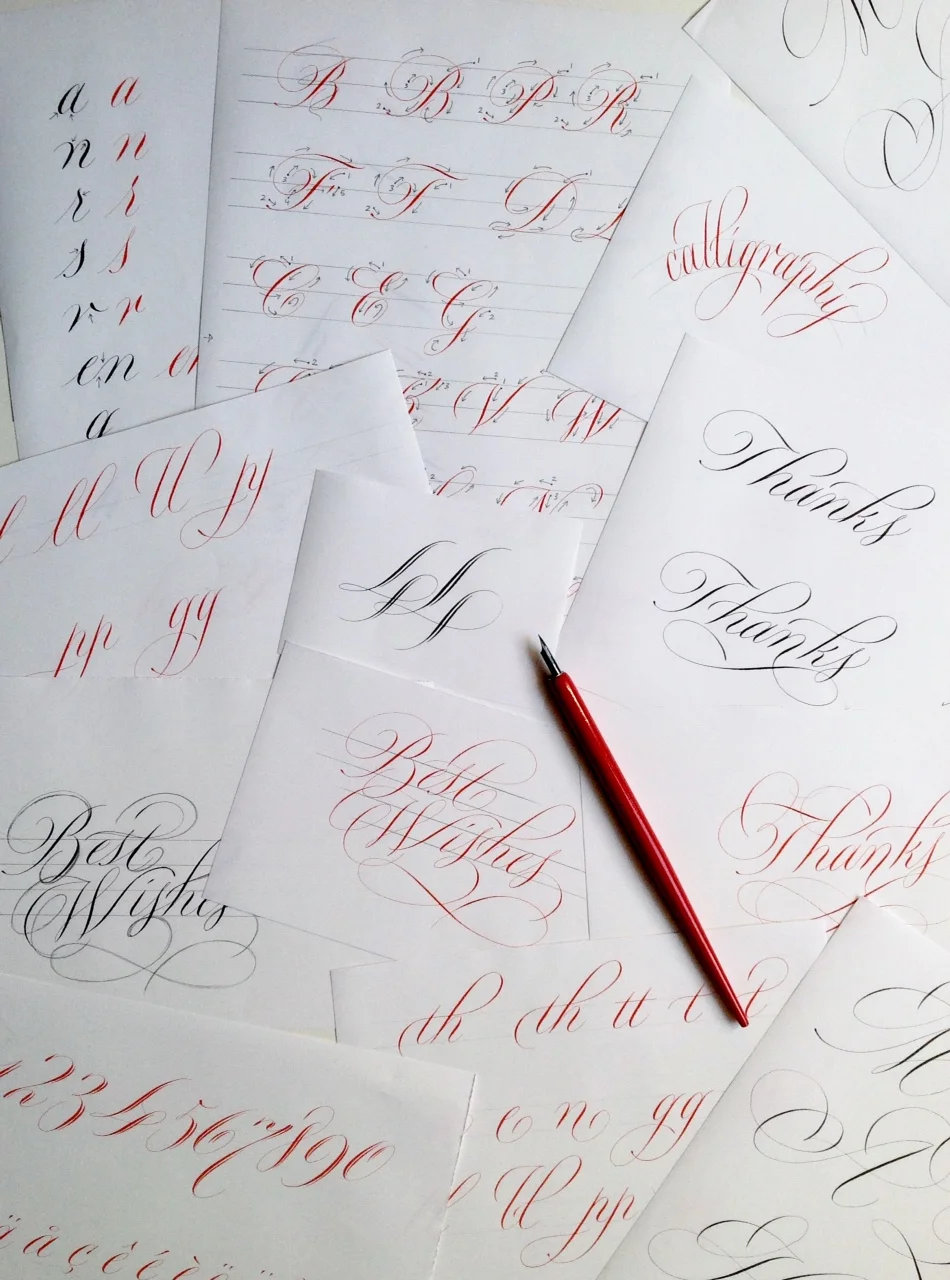 a a
n n
s s
v r
en en
a
B B P R
F T D
C E G
V W
calligraphy
ll ll py
pp gg
Thanks
Thanks
Best
Wishes
Best
Wishes
Thanks
th th tt t t
e n gg
ll pp
1234567890
ä å ç ê é è